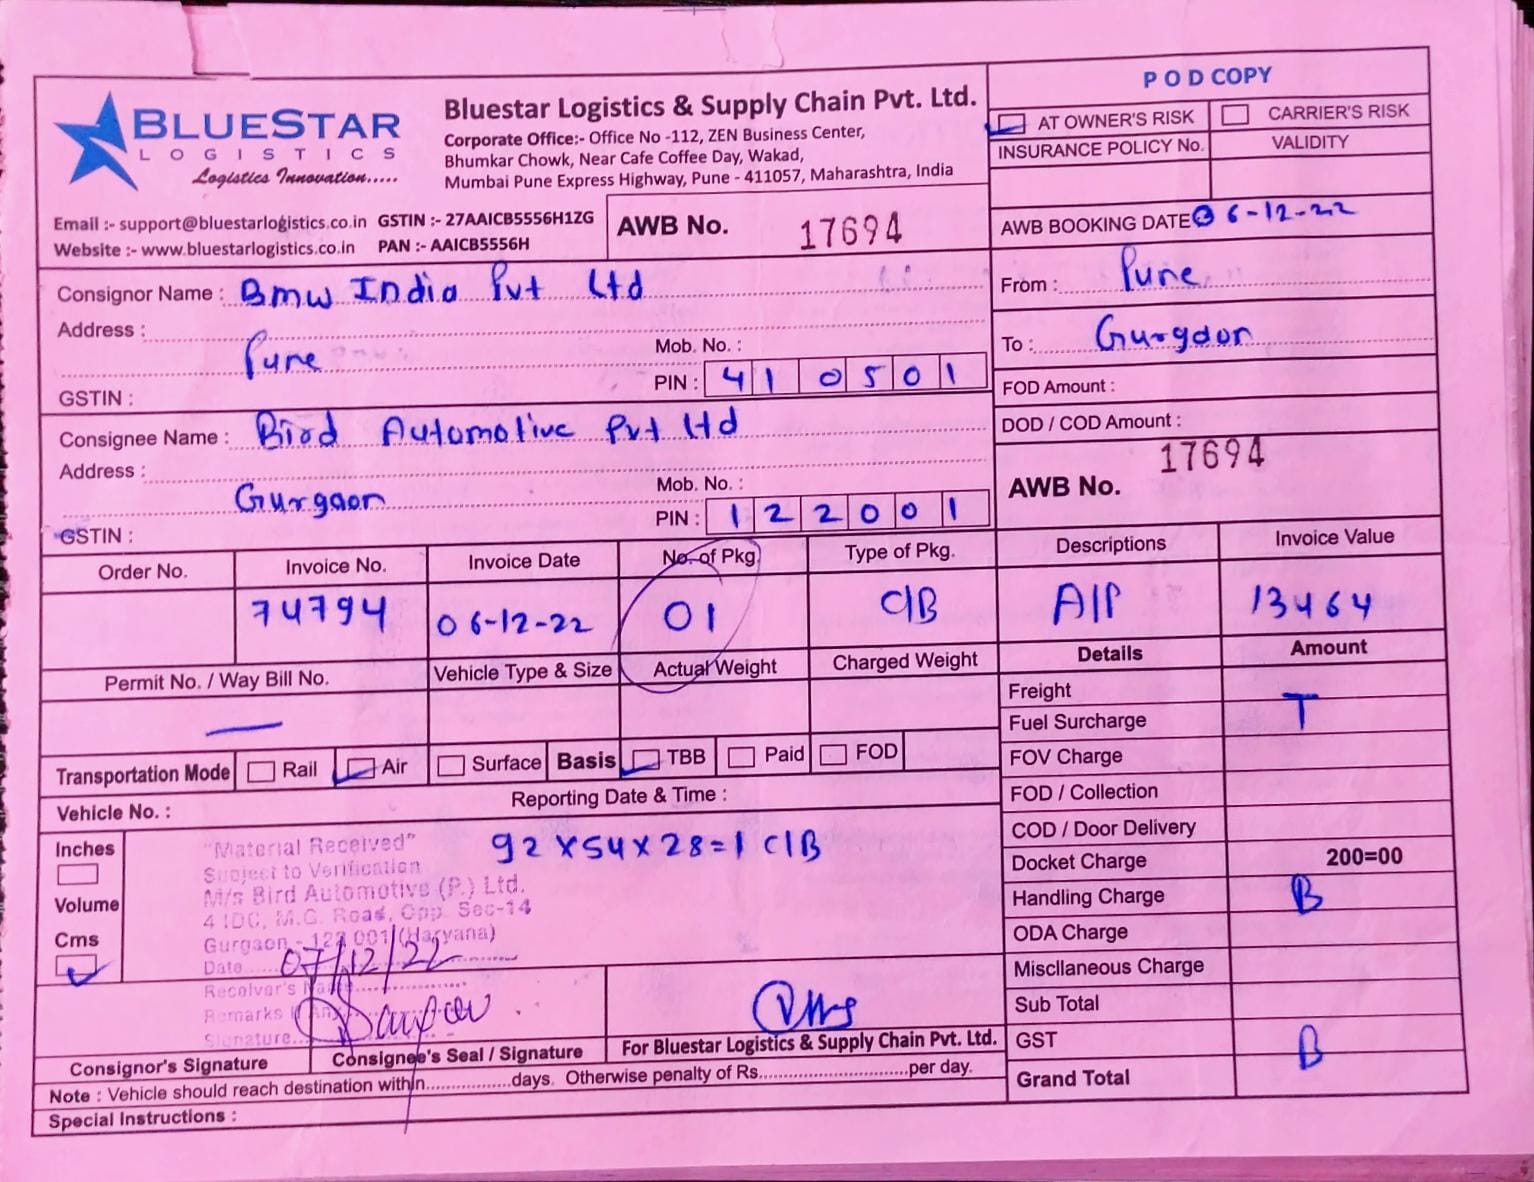 POD COPY
BLUESTAR
LOGISTICS
Logistics Innovation.....
Bluestar Logistics & Supply Chain Pvt. Ltd.
Corporate Office:- Office No -112, ZEN Business Center,
Bhumkar Chowk, Near Cafe Coffee Day, Wakad,
Mumbai Pune Express Highway, Pune - 411057, Maharashtra, India
AT OWNER'S RISK CARRIER'S RISK
INSURANCE POLICY No. VALIDITY
Email :- support@bluestarlogistics.co.in GSTIN :- 27AAICB5556H1ZG
Website :- www.bluestarlogistics.co.in PAN :- AAICB5556H
AWB No. 17694
AWB BOOKING DATE 6-12-22
Consignor Name : Bmw India Pvt Ltd
Address :
Pune
Mob. No. :
GSTIN :
PIN : 410501
From : Pune
To : Gurgaon
FOD Amount :
DOD / COD Amount :
Consignee Name : Bird Automotive Pvt Ltd
Address :
Gurgaon
Mob. No. :
GSTIN :
PIN : 122001
17694
AWB No.
Order No. Invoice No. Invoice Date No. of Pkg Type of Pkg. Descriptions Invoice Value
74794 06-12-22 01 C/B A/P 13464
Permit No. / Way Bill No. Vehicle Type & Size Actual Weight Charged Weight Details Amount
—
Freight
T
Fuel Surcharge
FOV Charge
FOD / Collection
COD / Door Delivery
Docket Charge 200=00
Handling Charge B
ODA Charge
Miscllaneous Charge
Sub Total
GST
B
Grand Total
Transportation Mode Rail Air Surface Basis TBB Paid FOD
Vehicle No. : Reporting Date & Time :
Inches
Volume
Cms
92 x 54 x 28 = 1 C/B
"Material Received"
Subject to Verification
M/s Bird Automotive (P.) Ltd.
4 IDC, M.G. Road, Opp. Sec-14
Gurgaon - 122 001 (Haryana)
Date 07/12/22
Receiver's Name
Remarks If Any
Signature
Consignor's Signature Consignee's Seal / Signature For Bluestar Logistics & Supply Chain Pvt. Ltd.
Note : Vehicle should reach destination within.................days. Otherwise penalty of Rs..............................per day.
Special Instructions :